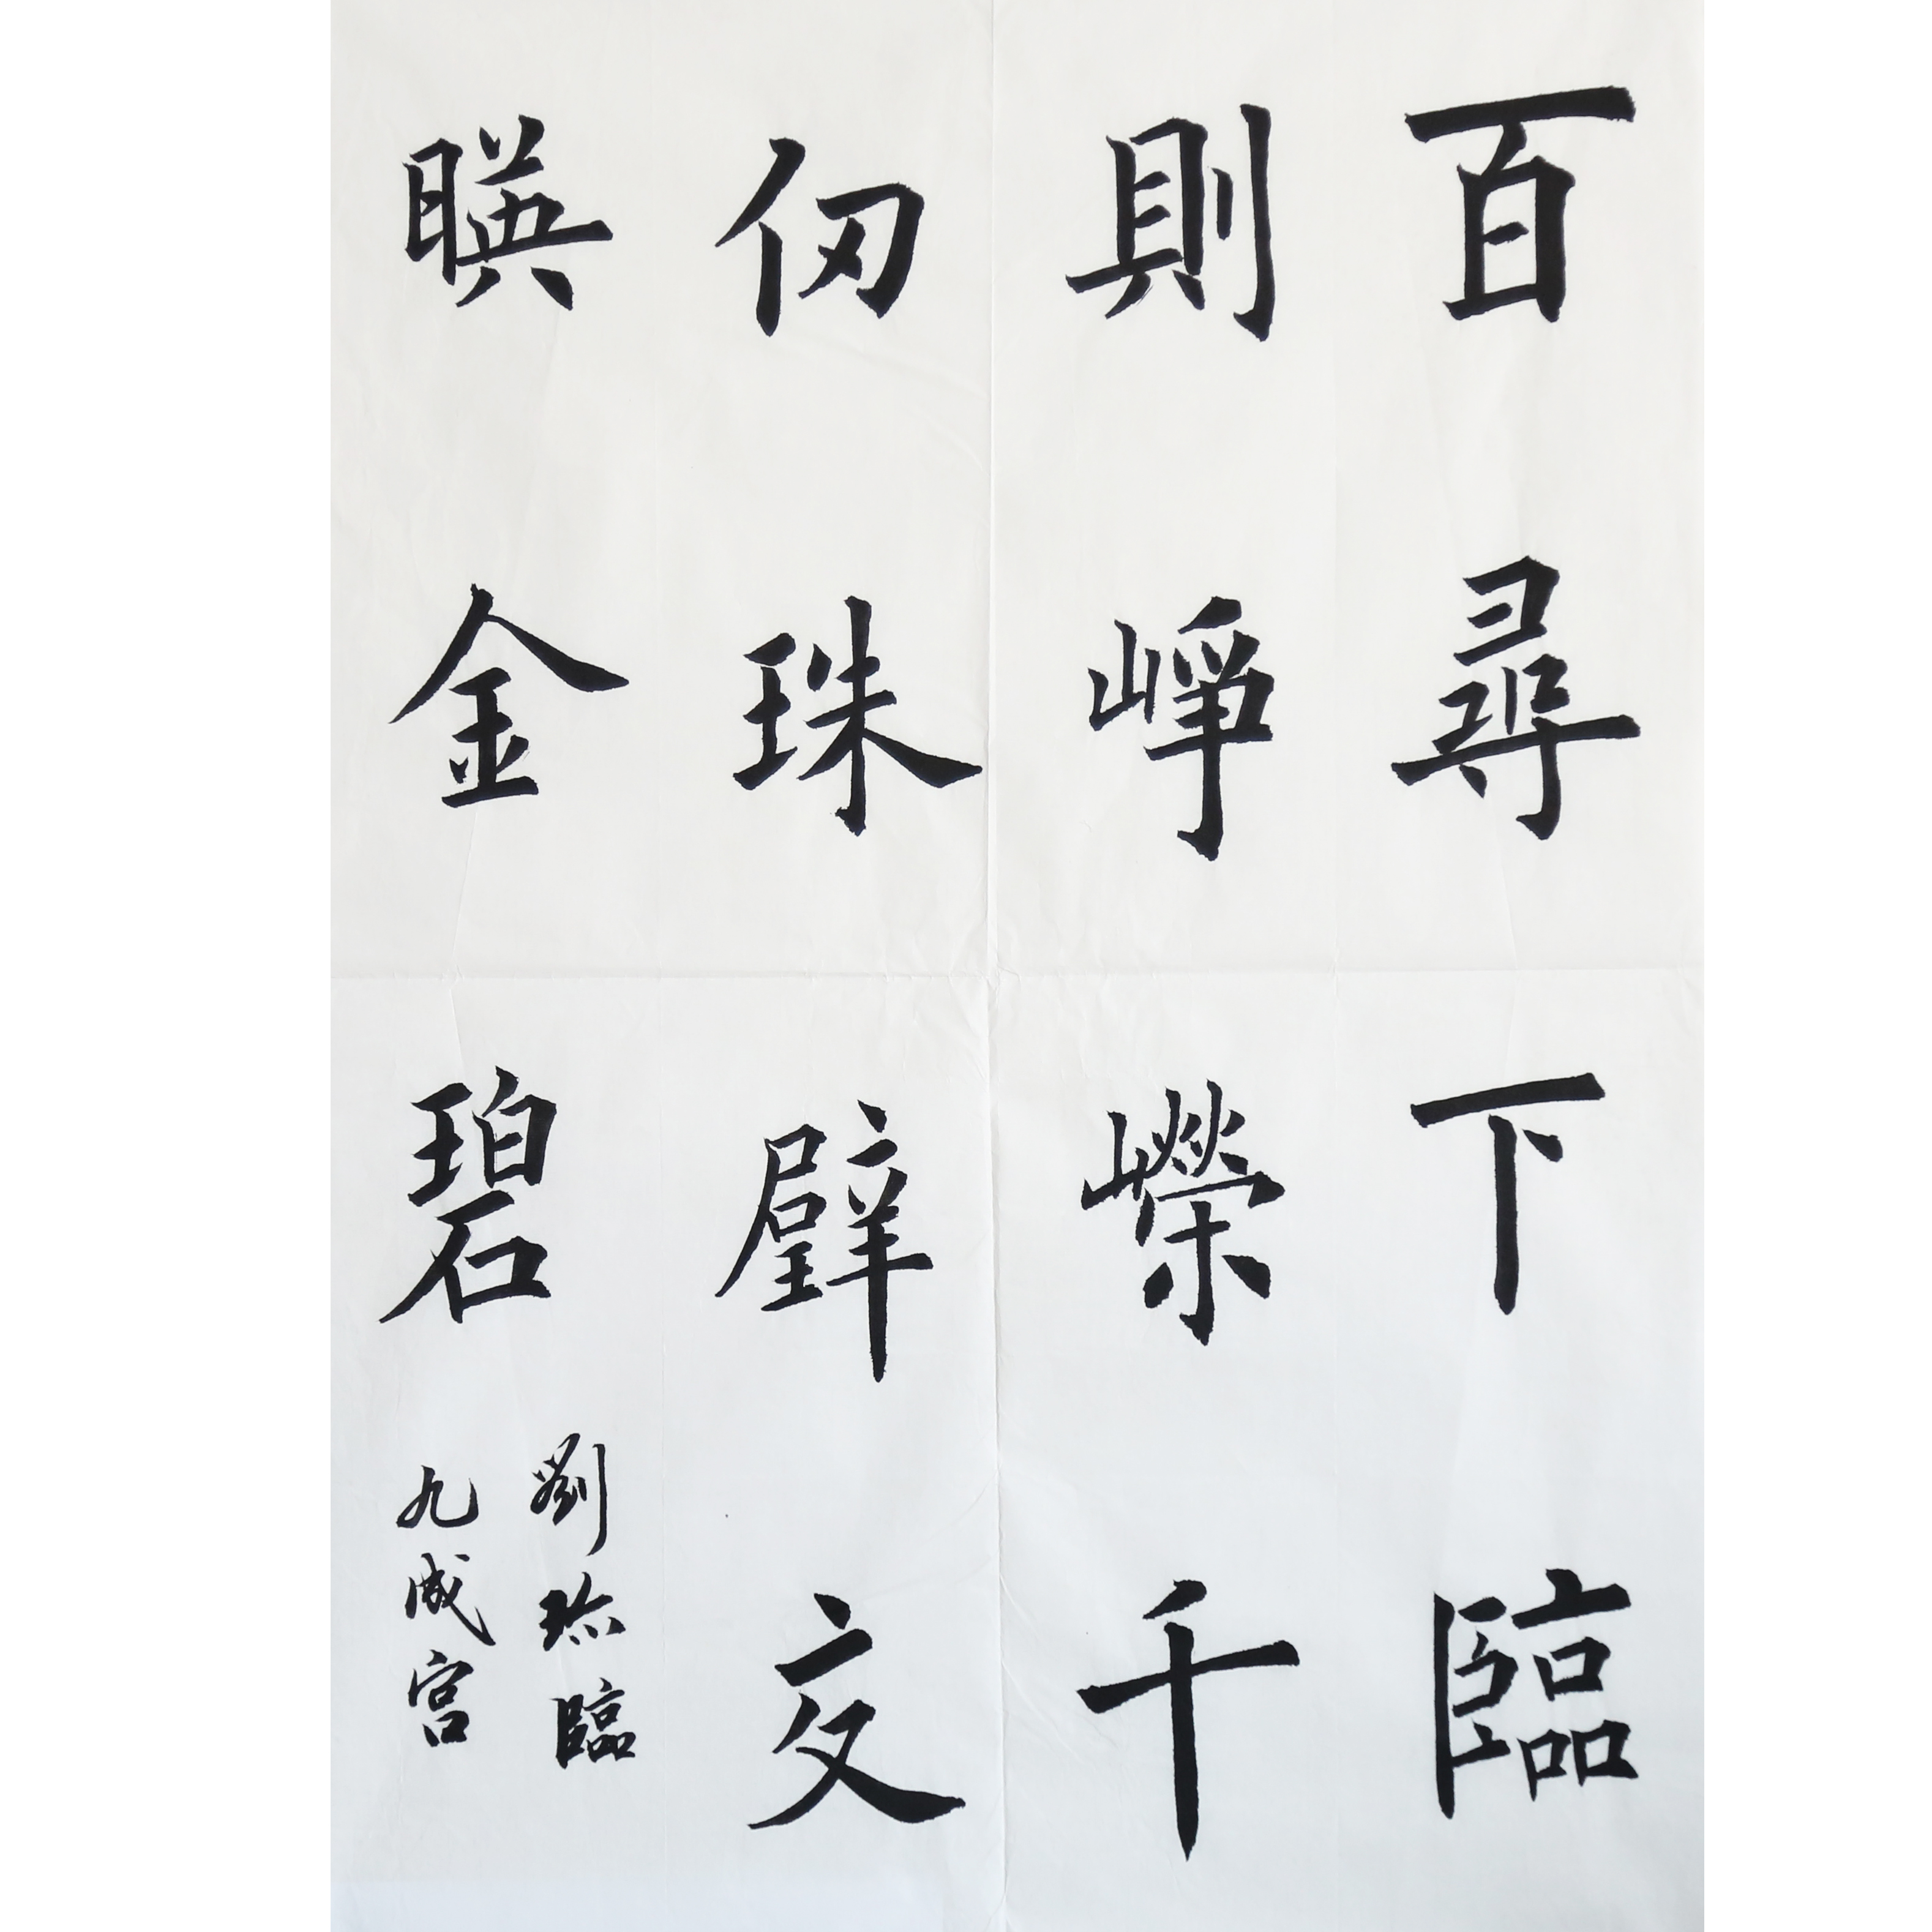 百尋下臨
則崢嶸千
仞珠璧交
暎金碧
劉珎臨
九成宮